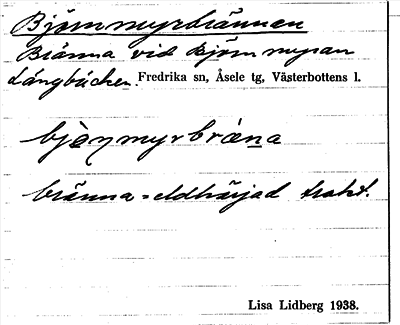 Björnmyrbrännan
Bränna vid Björnmyran
Långbäcken. Fredrika sn, Åsele tg, Västerbottens l.
bjɔ̀ņmyrbrɛ́na
bränna = eldhärjad trakt.
Lisa Lidberg 1938.